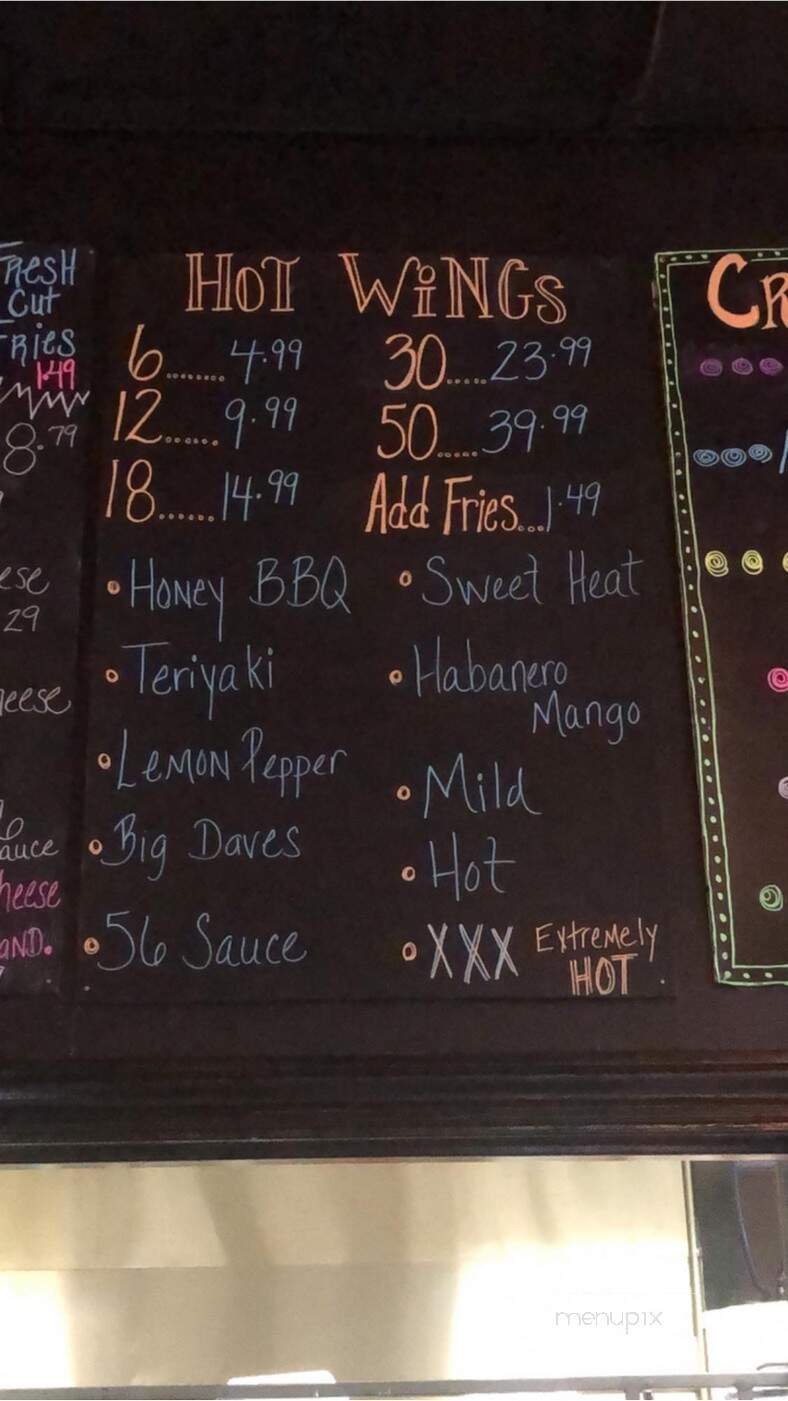 Fresh
Cut
Fries
1.49
8.79
29
HOT WiNGS
6........ 4.99
12...... 9.99
18...... 14.99
30.....23.99
50.....39.99
Add Fries...1.49
• Honey BBQ
• Teriyaki
• Lemon Pepper
• Big Daves
• 56 Sauce
• Sweet Heat
• Habanero
Mango
• Mild
• Hot
• XXX Extremely
HOT
menupix